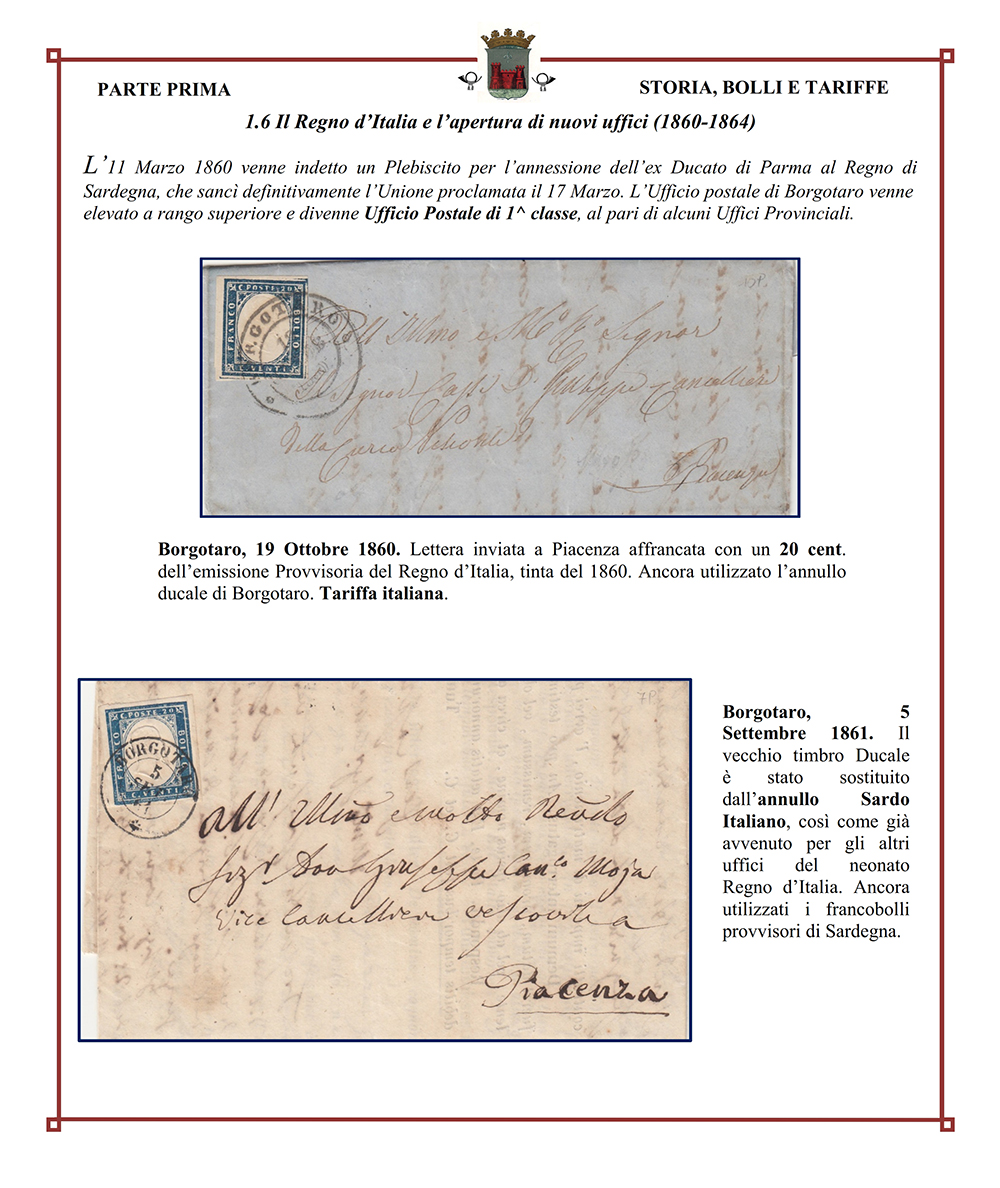 PARTE PRIMA
STORIA, BOLLI E TARIFFE
1.6 Il Regno d’Italia e l’apertura di nuovi uffici (1860-1864)
L’11 Marzo 1860 venne indetto un Plebiscito per l’annessione dell’ex Ducato di Parma al Regno di
Sardegna, che sancì definitivamente l’Unione proclamata il 17 Marzo. L’Ufficio postale di Borgotaro venne
elevato a rango superiore e divenne Ufficio Postale di 1^ classe, al pari di alcuni Uffici Provinciali.
C. POSTE 20
FRANCO
BOLLO
C. VENTI
15P.
Signor
Il Signor
Giuseppe Cancelliere
della Curia
Piacenza
Borgotaro, 19 Ottobre 1860. Lettera inviata a Piacenza affrancata con un 20 cent.
dell’emissione Provvisoria del Regno d’Italia, tinta del 1860. Ancora utilizzato l’annullo
ducale di Borgotaro. Tariffa italiana.
C. POSTE 20
FRANCO
BOLLO
C. VENTI
BORGOTARO
5
SET
7P.
All' Illmo e molto Revdo
Sigr Don Giuseppe Canco Moja
Vice Cancelliere vescovile a
Piacenza
Borgotaro, 5
Settembre 1861. Il
vecchio timbro Ducale
è stato sostituito
dall’annullo Sardo
Italiano, così come già
avvenuto per gli altri
uffici del neonato
Regno d’Italia. Ancora
utilizzati i francobolli
provvisori di Sardegna.